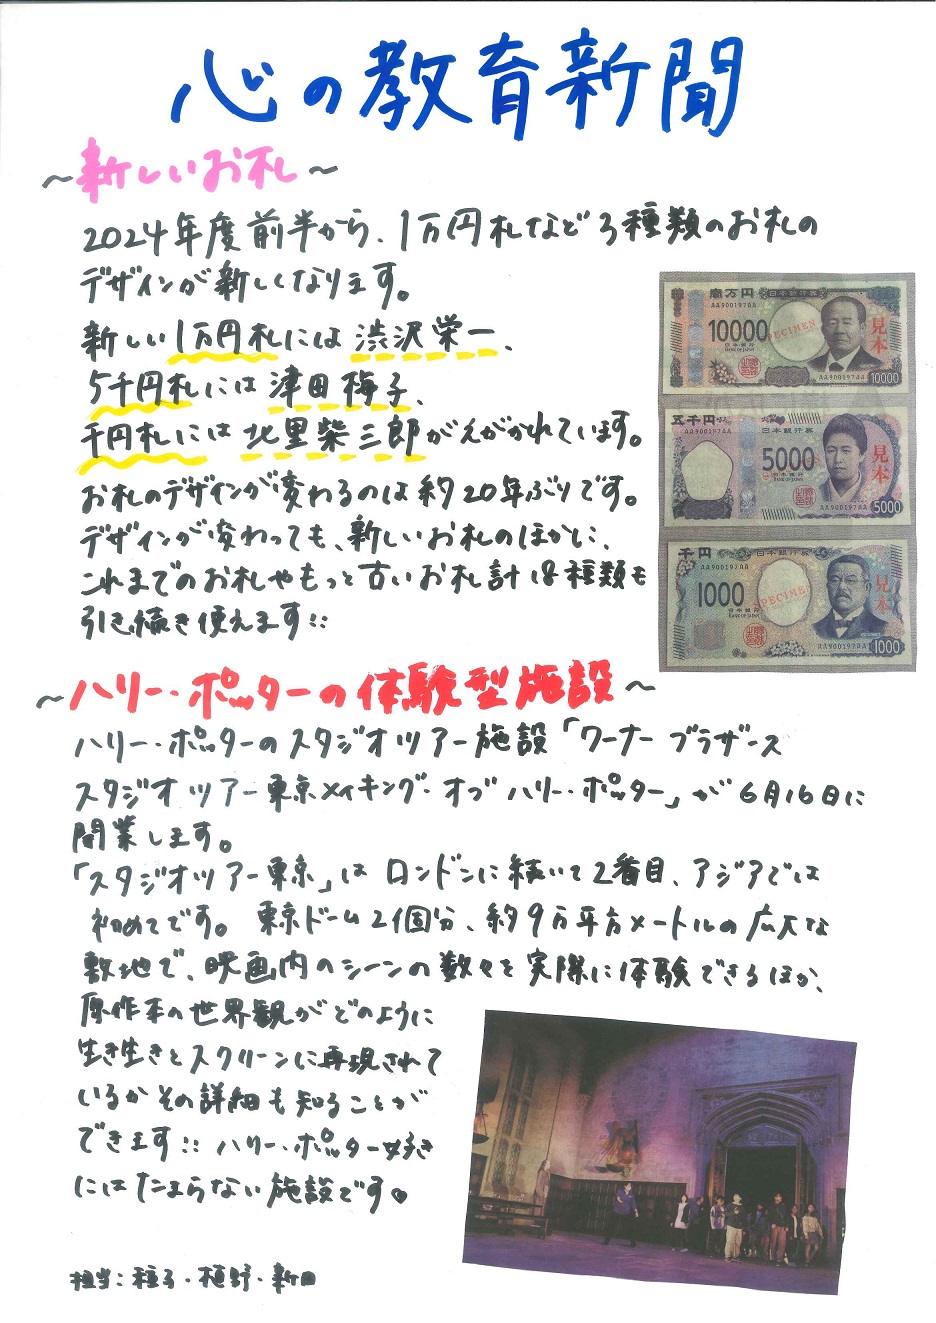 心の教育新聞
~新しいお札~
2024年度前半から、1万円札など3種類のお札の
デザインが新しくなります。
新しい1万円札には 渋沢栄一、
5千円札には 津田梅子、
千円札には 北里柴三郎がえがかれています。
お札のデザインが変わるのは約20年ぶりです。
デザインが変わっても、新しいお札のほかに、
これまでのお札やもっと古いお札計18種類も
引き続き使えます!!
壱万円 日本銀行券
AA900197AA
10000
SPECIMEN
見本
日本銀行
BANK OF JAPAN
AA900197AA 10000
五千円
日本銀行券
AA900197AA
5000
見本
日本銀行
BANK OF JAPAN
AA900197AA
5000
千円 日本銀行券
AA900197AA
1000
SPECIMEN
見本
日本銀行
BANK OF JAPAN
AA900197AA 1000
~ハリー・ポッターの体験型施設~
ハリー・ポッターのスタジオツアー施設「ワーナー ブラザース
スタジオツアー東京メイキング・オブ ハリー・ポッター」が6月16日に
開業します。
「スタジオツアー東京」は ロンドンに続いて2番目、アジアでは
初めてです。 東京ドーム2個分、約9万平方メートルの広大な
敷地で、映画内のシーンの数々を実際に体験できるほか、
原作本の世界観がどのように
生き生きとスクリーンに再現されて
いるかその詳細も知ることが
できます!! ハリー・ポッター好き
にはたまらない施設です。
担当:種子・植野・新田